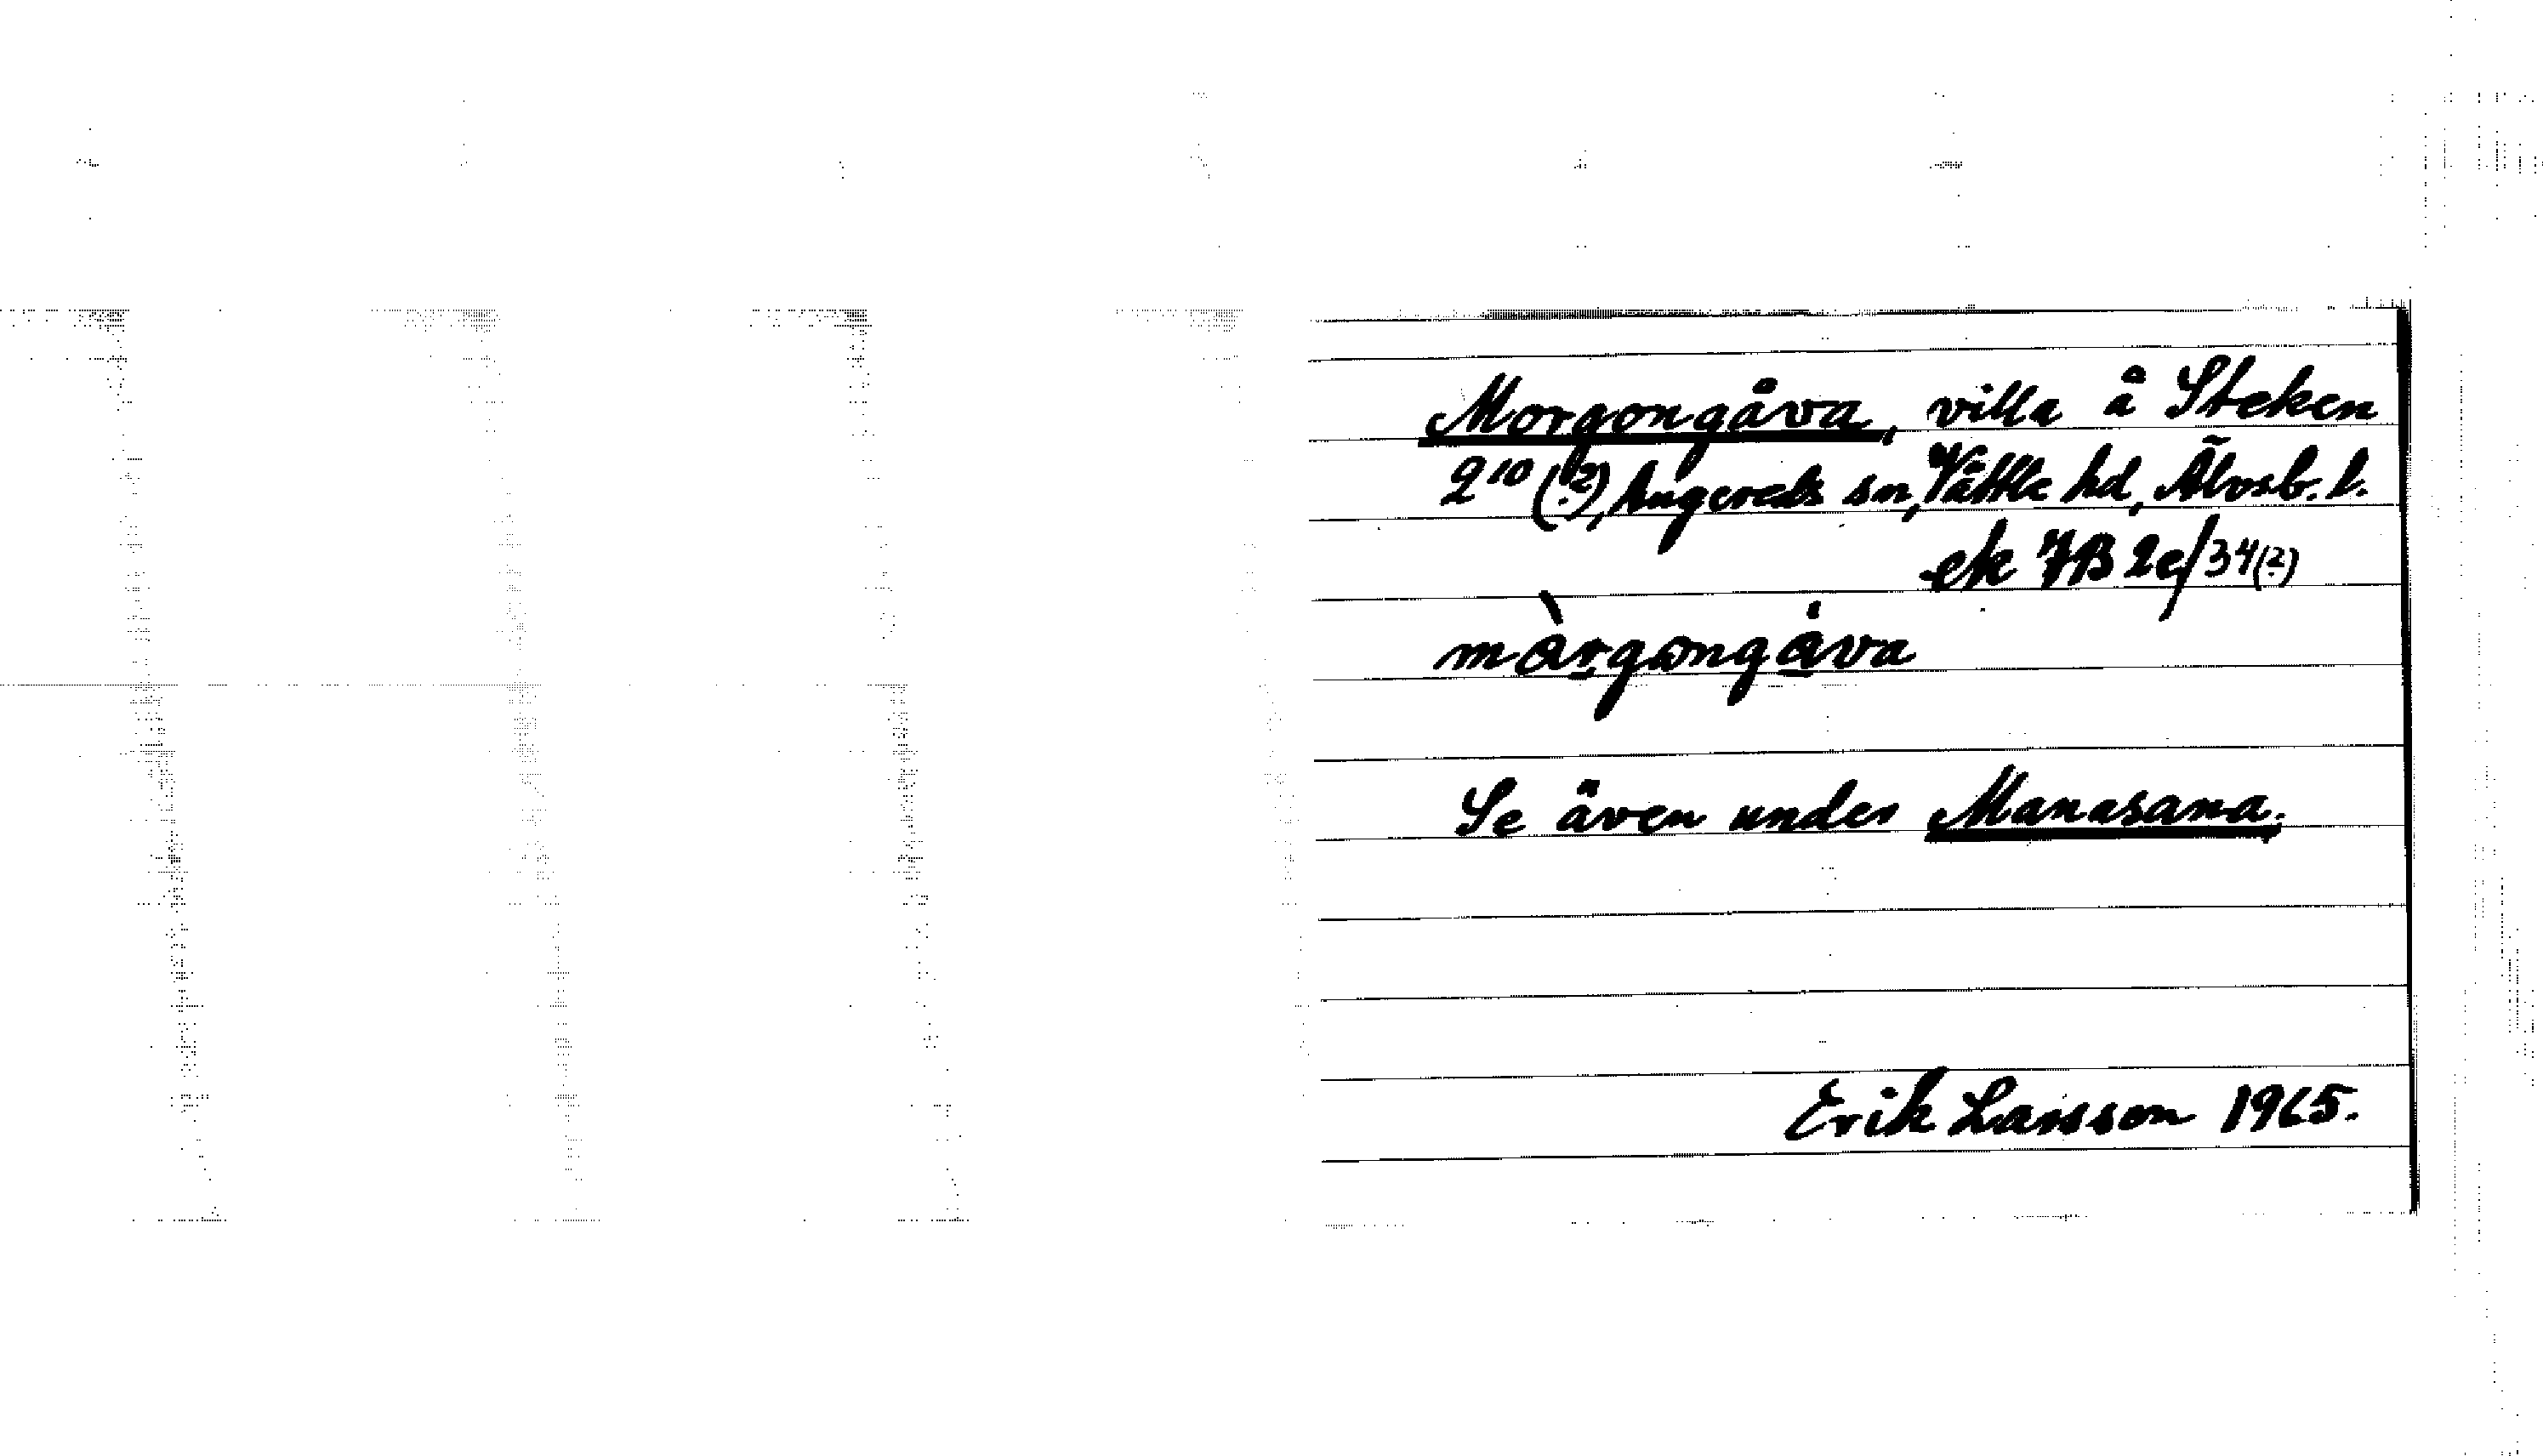 Morgongåva, villa å Steken
2¹⁰ (?), Angereds sn, Vättle hd, Älvsb. l.
ek 7B 2e/34(?)
màrgongåva
Se även under Manasana.
Erik Larsson 1965.